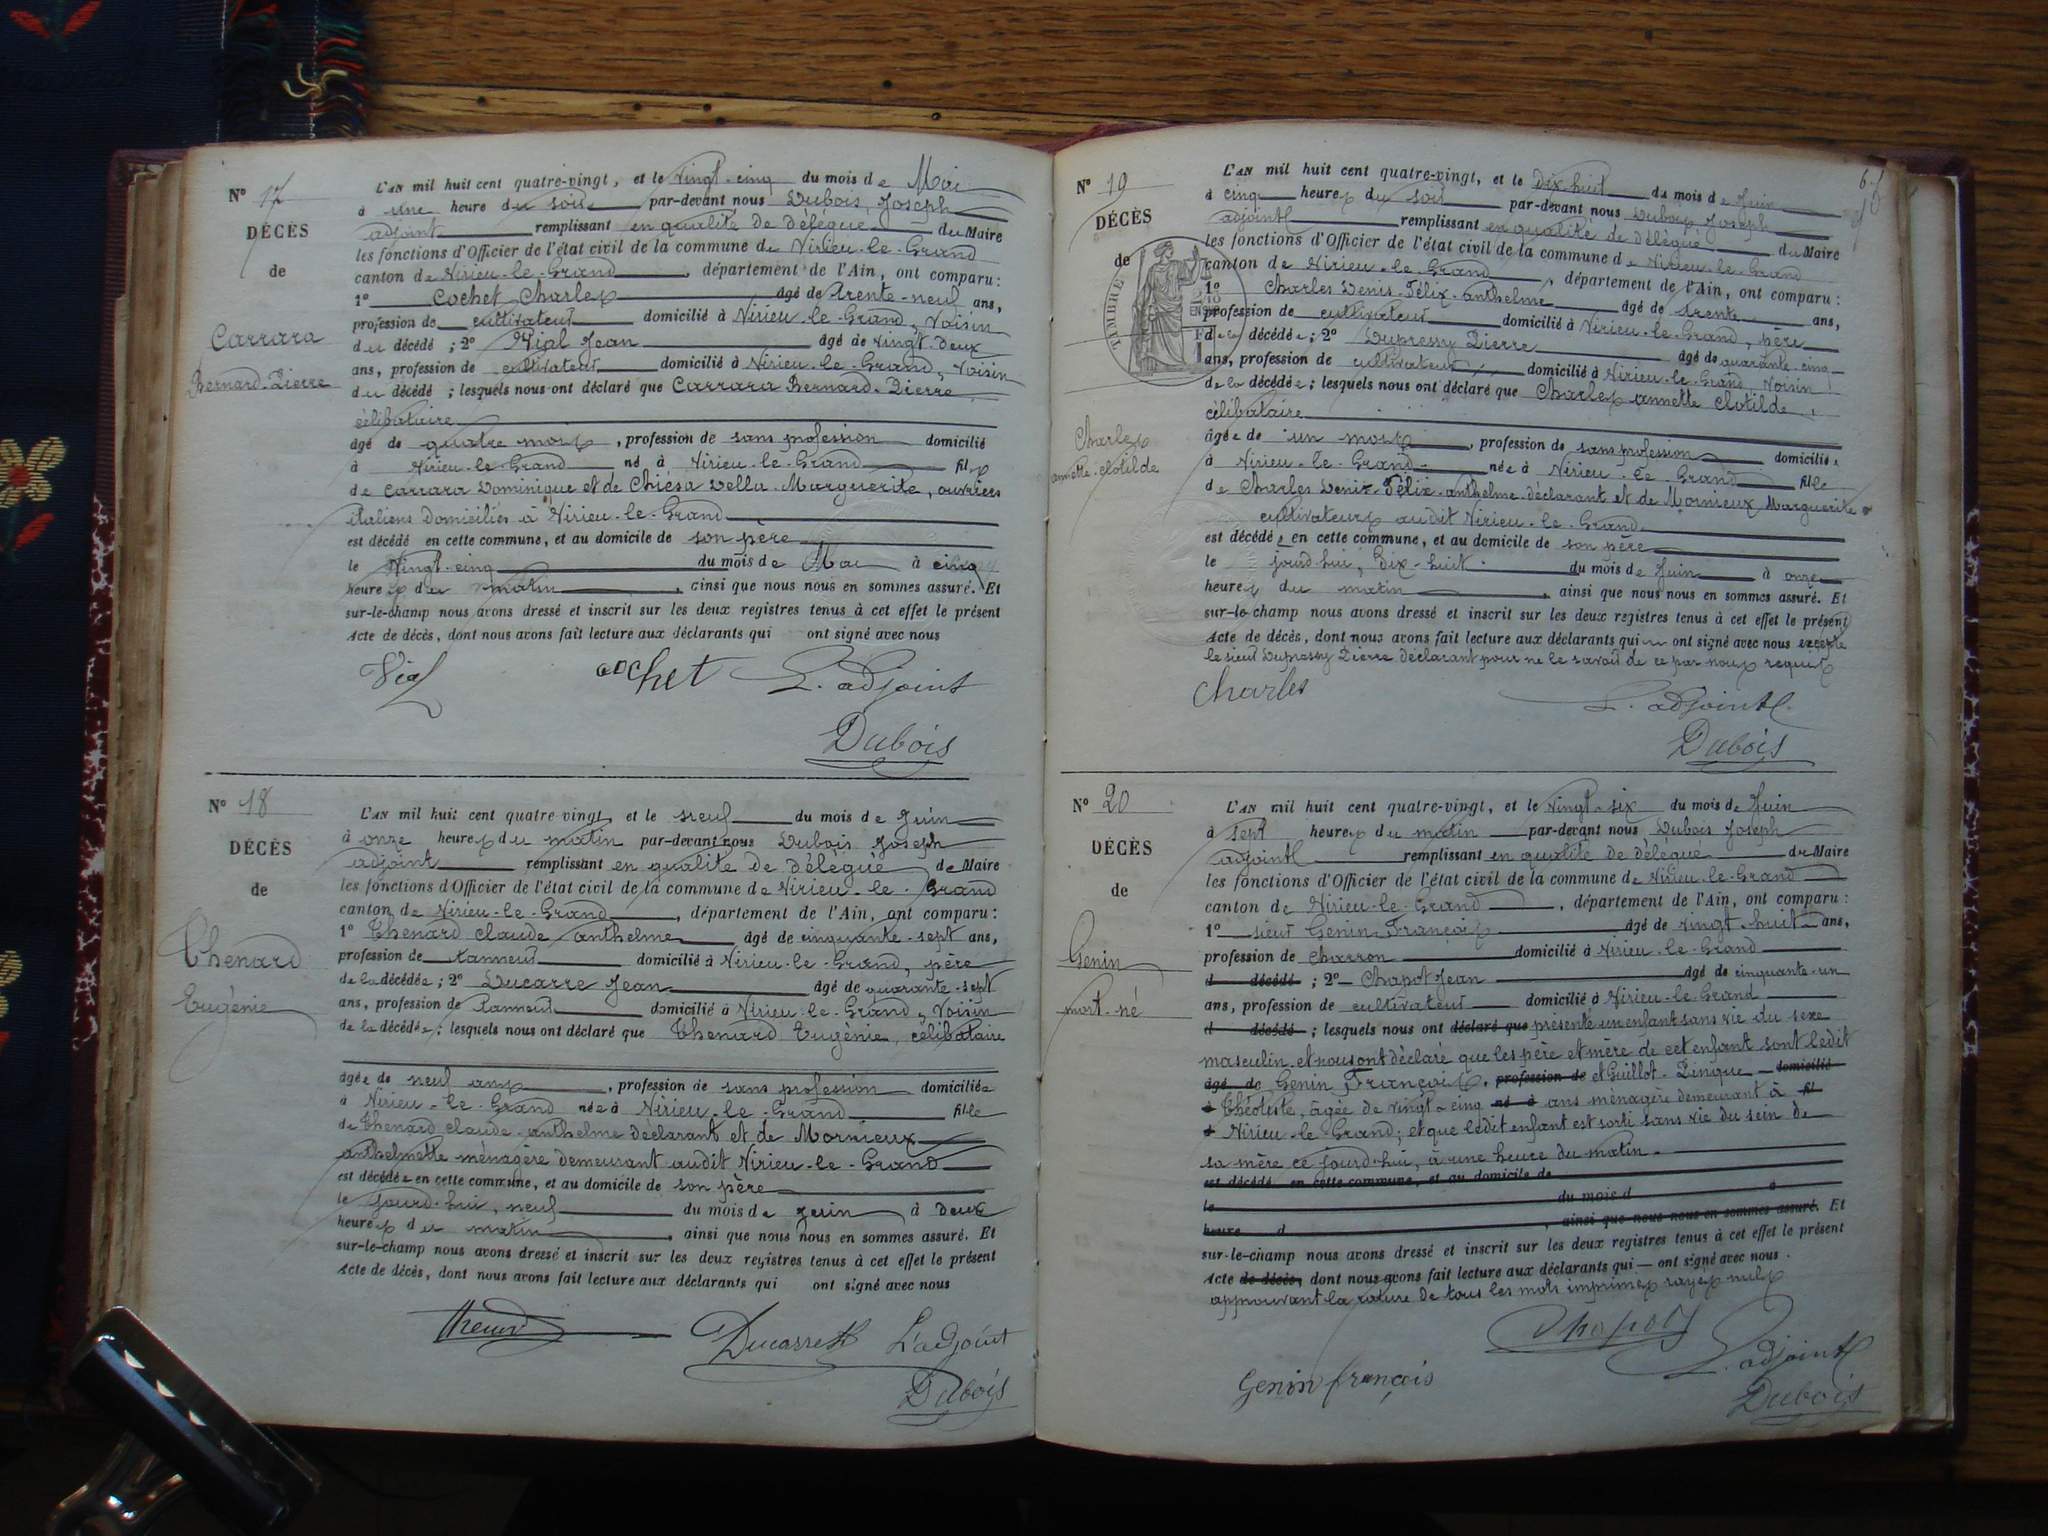 N° 17
DÉCÈS
de
Carrara
Bernard-Pierre
L'AN mil huit cent quatre-vingt, et le vingt-cinq du mois de Mai
à une heure du soir par-devant nous Dubois, Joseph
adjoint remplissant en qualité de délégué du Maire
les fonctions d'Officier de l'état civil de la commune de Virieu-le-Grand
canton de Virieu-le-Grand, département de l'Ain, ont comparu :
1° Cochet Charles âgé de trente-neuf ans,
profession de cultivateur domicilié à Virieu-le-Grand, voisin
du décédé ; 2° Vial Jean âgé de vingt-deux
ans, profession de cultivateur domicilié à Virieu-le-Grand, voisin
du décédé ; lesquels nous ont déclaré que Carrara Bernard-Pierre,
célibataire
âgé de quatre mois, profession de sans profession domicilié
à Virieu-le-Grand né à Virieu-le-Grand fils
de Carrara Dominique et de Chiésa Della Marguerite, ouvriers
italiens domiciliés à Virieu-le-Grand
est décédé en cette commune, et au domicile de son père
le vingt-cinq du mois de Mai à cinq
heures du matin, ainsi que nous nous en sommes assuré. Et
sur-le-champ nous avons dressé et inscrit sur les deux registres tenus à cet effet le présent
Acte de décès, dont nous avons fait lecture aux déclarants qui ont signé avec nous
Vial cochet L'adjoint
Dubois
N° 18
DÉCÈS
de
Thenard
Eugénie
L'AN mil huit cent quatre-vingt et le neuf du mois de Juin
à onze heures du matin par-devant nous Dubois Joseph
adjoint remplissant en qualité de délégué de Maire
les fonctions d'Officier de l'état civil de la commune de Virieu-le-Grand
canton de Virieu-le-Grand, département de l'Ain, ont comparu :
1° Thenard claude anthelme âgé de cinquante-sept ans,
profession de tanneur domicilié à Virieu-le-Grand, père
de la décédée ; 2° Ducarre Jean âgé de quarante-sept
ans, profession de tanneur domicilié à Virieu-le-Grand, voisin
de la décédée ; lesquels nous ont déclaré que Thenard Eugénie, célibataire
âgée de neuf ans, profession de sans profession domiciliée
à Virieu-le-Grand née à Virieu-le-Grand fille
de Thenard claude-anthelme déclarant et de Mornieux
anthelmette ménagère demeurant audit Virieu-le-Grand
est décédée en cette commune, et au domicile de son père
le jourd'hui, neuf du mois de juin à deux
heures du matin, ainsi que nous nous en sommes assuré. Et
sur-le-champ nous avons dressé et inscrit sur les deux registres tenus à cet effet le présent
Acte de décès, dont nous avons fait lecture aux déclarants qui ont signé avec nous
L'adjoint
Dubois
N° 19
DÉCÈS
de
TIMBRE
Charles
annette-clotilde
L'AN mil huit cent quatre-vingt, et le dix-huit du mois de Juin
à cinq heures du soir par-devant nous Dubois Joseph
adjoint remplissant en qualité de délégué du Maire
les fonctions d'Officier de l'état civil de la commune de Virieu-le-Grand
canton de Virieu-le-Grand, département de l'Ain, ont comparu :
1° Charles Denis-Félix-anthelme âgé de trente ans,
profession de cultivateur domicilié à Virieu-le-Grand, père
de la décédée ; 2° Dupressy Pierre âgé de quarante-cinq
ans, profession de cultivateur domicilié à Virieu-le-Grand, voisin
de la décédée ; lesquels nous ont déclaré que Charles annette Clotilde,
célibataire
âgée de un mois, profession de sans profession domiciliée
à Virieu-le-Grand née à Virieu-le-Grand fille
de Charles Denis-Félix-anthelme déclarant et de Mornieux Marguerite
cultivateurs audit Virieu-le-Grand
est décédée en cette commune, et au domicile de son père
le jourd'hui, Dix-huit du mois de Juin à onze
heures du matin, ainsi que nous nous en sommes assuré. Et
sur-le-champ nous avons dressé et inscrit sur les deux registres tenus à cet effet le présent
Acte de décès, dont nous avons fait lecture aux déclarants qui ont signé avec nous excepté
le sieur Dupressy Pierre déclarant pour ne le savoir de ce par nous requis
Charles L'adjoint
Dubois
N° 20
DÉCÈS
de
Genin
mort-né
L'AN mil huit cent quatre-vingt, et le vingt-six du mois de Juin
à sept heures du matin par-devant nous Dubois Joseph
adjoint remplissant en qualité de délégué du Maire
les fonctions d'Officier de l'état civil de la commune de Virieu-le-Grand
canton de Virieu-le-Grand, département de l'Ain, ont comparu :
1° sieur Genin François âgé de vingt-huit ans,
profession de charron domicilié à Virieu-le-Grand
d décédé ; 2° Chapot Jean âgé de cinquante-un
ans, profession de cultivateur domicilié à Virieu-le-Grand
d décédé ; lesquels nous ont déclaré que présenté un enfant sans vie du sexe
masculin et nous ont déclaré que les père et mère de cet enfant sont ledit
âgé de Genin François, profession de et Guillot-Pingue domicilié
à Théotiste, âgée de vingt-cinq né à ans ménagère demeurant à fil
d Virieu-le-Grand ; et que ledit enfant est sorti sans vie du sein de
sa mère ce jourd'hui, à une heure du matin.
est décédé en cette commune, et au domicile de
le du mois d à
heure d, ainsi que nous nous en sommes assuré. Et
sur-le-champ nous avons dressé et inscrit sur les deux registres tenus à cet effet le présent
Acte de décès, dont nous avons fait lecture aux déclarants qui ont signé avec nous.
approuvant la rature de tous les mots imprimés rayés nuls
Chapot
Genin françois L'adjoint
Dubois